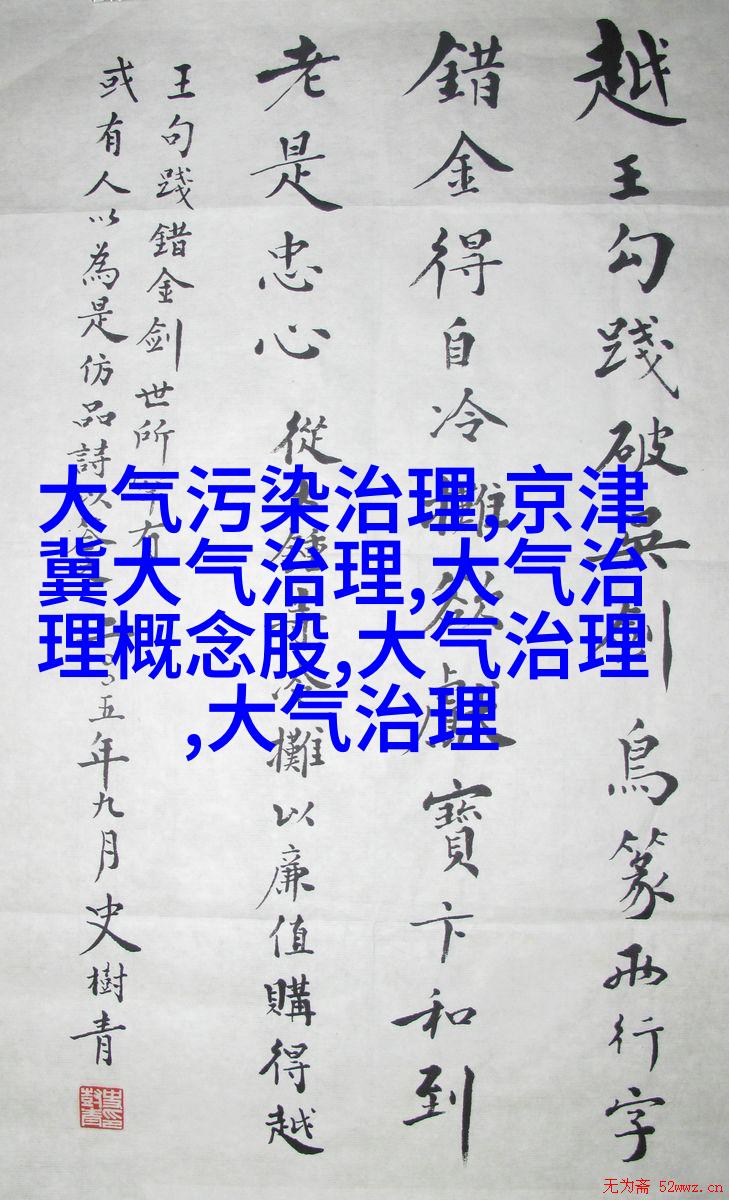 越王勾踐破吳劍鳥篆兩行字
錯金得自冷攤獻寶卞和到
老是忠心 從大鐘寺冷攤以廉值購得越
王句踐錯金剑世所罕有
或有人以為是仿品詩以二〇〇五年九月史樹青
大气污染治理,京津
冀大气治理,大气治
理概念股,大气治理
,大气治理
无为斋 52wwz.cn